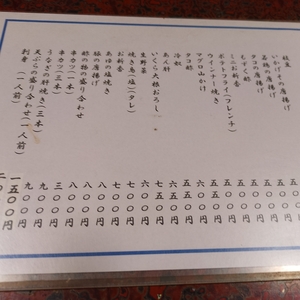 枝豆
いかげその唐揚げ
若鶏の唐揚げ
タコの唐揚げ
もずく酢
ミニお新香
ポテトフライ(フレンチ)
ウインナー焼き
マグロ山かけ
タコ酢
冷奴
あん肝
いくら大根おろし
生野菜
お新香
焼き鳥(塩)(タレ)
あゆの塩焼き
酢の物の盛り合わせ
豚の唐揚げ
串カツ(一本)
串カツ(三本)
うなぎの肝焼き(三本)
天ぷらの盛り合わせ(一人前)
刺身(一人前)
五〇〇円
五〇〇円
五〇〇円
五〇〇円
五〇〇円
五〇〇円
五〇〇円
五〇〇円
六〇〇円
七五〇円
六〇〇円
七〇〇円
七〇〇円
八〇〇円
八〇〇円
三〇〇円
九〇〇円
九〇〇円
一五〇〇円